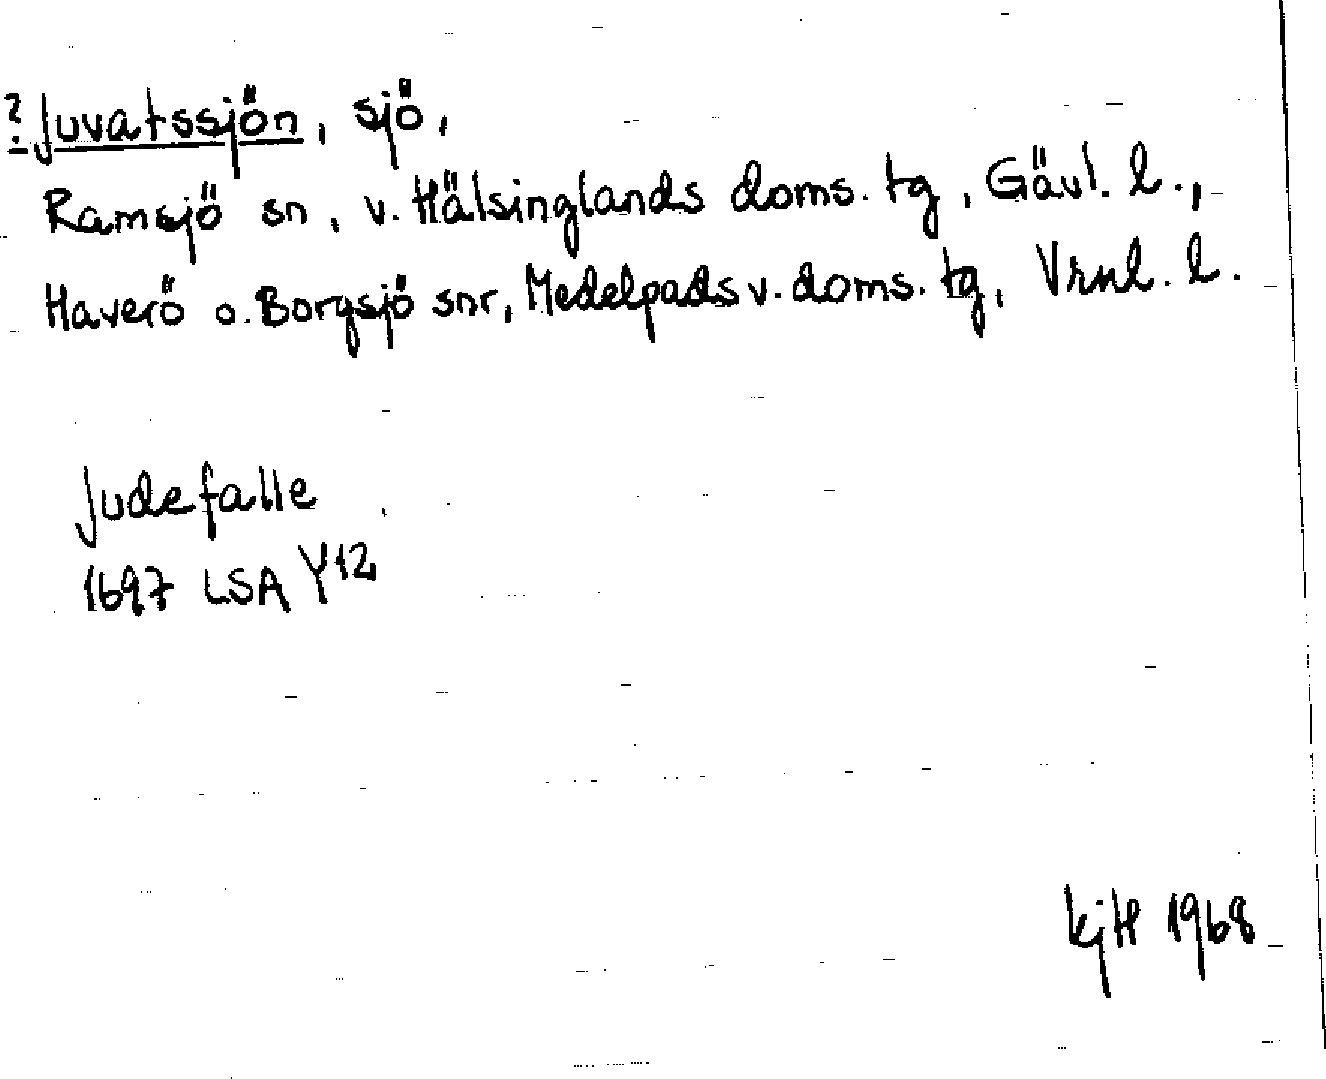 ? Juvatssjön, sjö,
Ramsjö sn, v. Hälsinglands doms. tg, Gävl. l.,
Haverö o. Borgsjö snr, Medelpads v. doms. tg, Vrnl. l.
Judefalle
1697 LSA Y12
KjH 1968